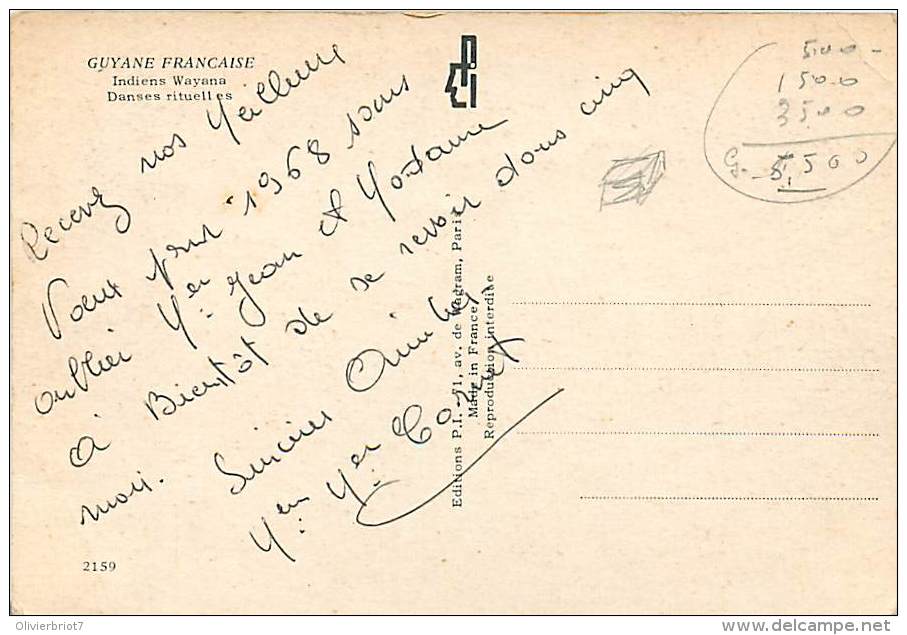 GUYANE FRANCAISE
Indiens Wayana
Danses rituelles
Recevez nos Meilleurs
Voeux pour 1968 sans
oublier Mer Jean et Madame
à Bientôt de se revoir dans cinq
mois. Sincères Amitiés
Mer
2159
Editions P.I. - 71, av. de Wagram, Paris
Made in France
Reproduction interdite
500 -
1500
3500
5,500
Olivierbriot7
delcampe.net